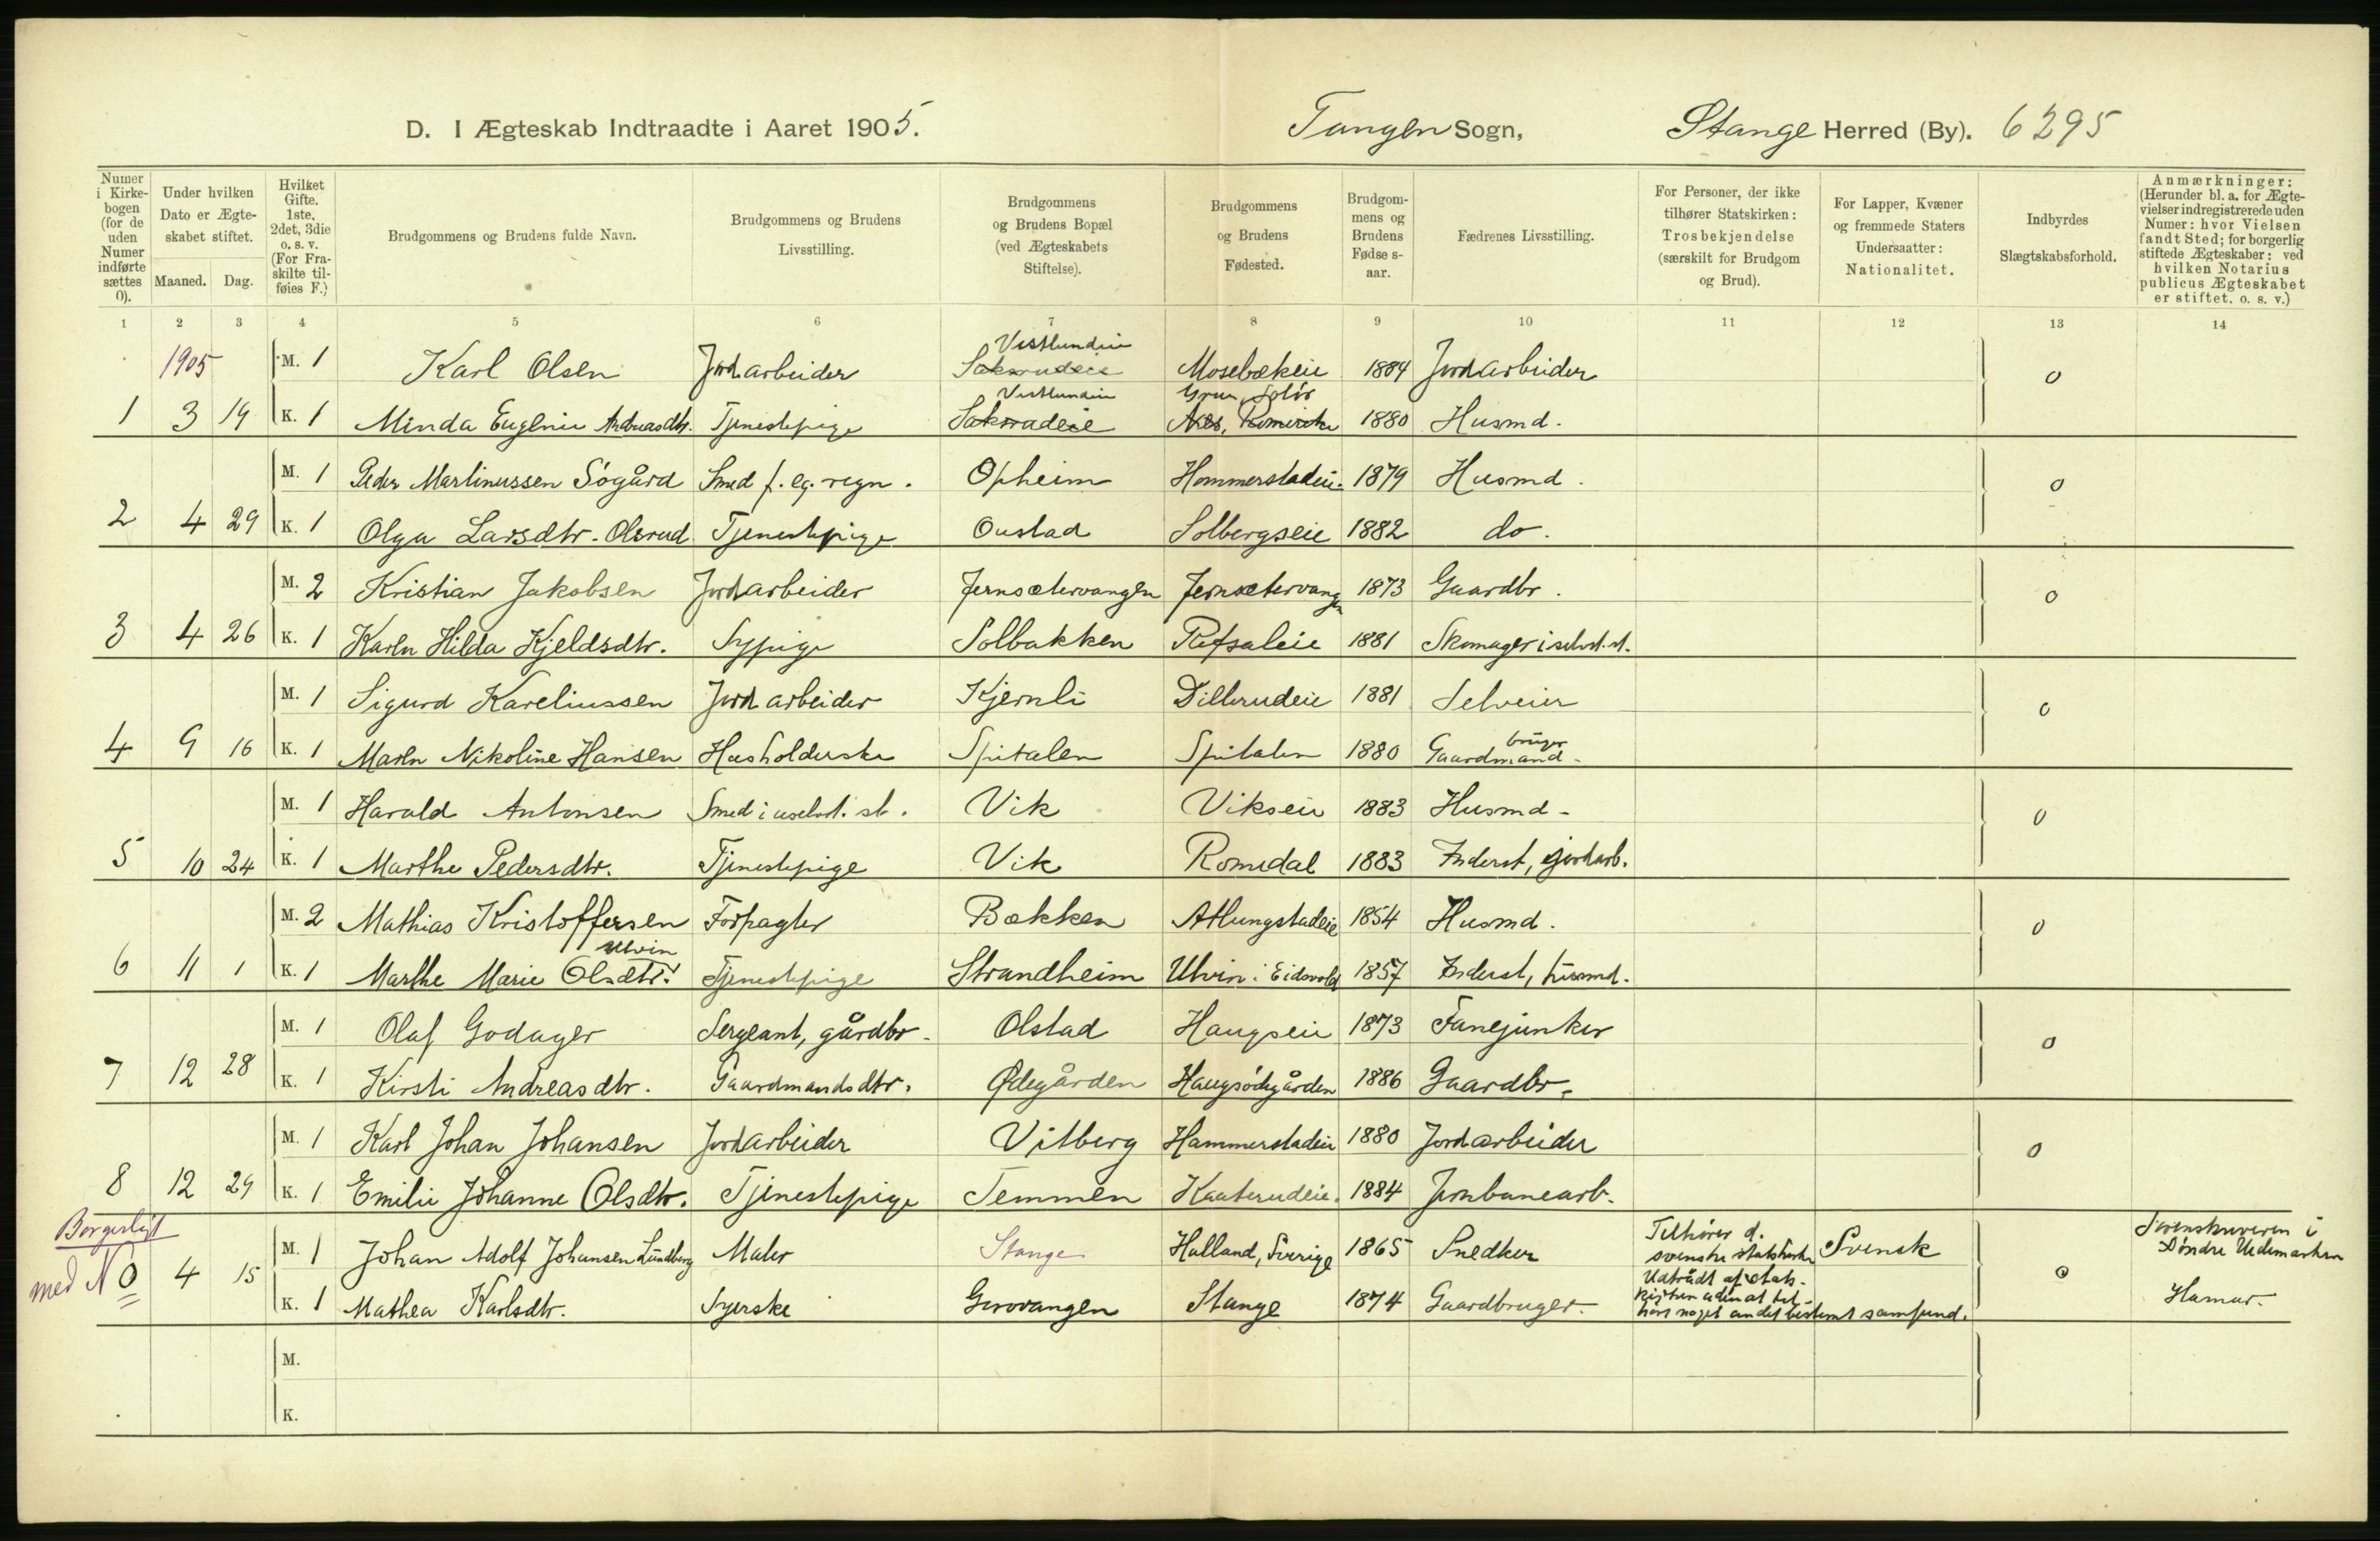 D. I Ægteskab Indtraadte i Aaret 1905. Tangen Sogn, Stange Herred (By). 6295
Numer i Kirkebogen (for de uden Numer indførte sættes 0).
Under hvilken Dato er Ægteskabet stiftet.
Maaned. Dag.
Hvilket Gifte. 1ste, 2det, 3die o. s. v. (For Fraskilte tilføies F.)
Brudgommens og Brudens fulde Navn.
Brudgommens og Brudens Livsstilling.
Brudgommens og Brudens Bopæl (ved Ægteskabets Stiftelse).
Brudgommens og Brudens Fødested.
Brudgommens og Brudens Fødse s-aar.
Fædrenes Livsstilling.
For Personer, der ikke tilhører Statskirken: Trosbekjendelse (særskilt for Brudgom og Brud).
For Lapper, Kvæner og fremmede Staters Undersaatter: Nationalitet.
Indbyrdes Slægtskabsforhold.
Anmærkninger: (Herunder bl. a. for Ægtevielser indregistrerede uden Numer: hvor Vielsen fandt Sted; for borgerlig stiftede Ægteskaber: ved hvilken Notarius publicus Ægteskabet er stiftet, o. s. v.)
1 2 3 4 5 6 7 8 9 10 11 12 13 14
Vestlundeie
1905 M. 1 Karl Olsen Jordarbeider Saksrudeie Mosebækeie 1884 Jordarbeider 0
Vestlundeie Grue, Solör
1 3 19 K. 1 Minda Eugenie Andreasdtr. Tjenestepige Saksrudeie 1880 Husmd.
M. 1 Peder Martinussen Sögård Smed f. eg. regn. Opheim Hommerstadeie 1879 Husmd. 0
2 4 29 K. 1 Olga Larsdtr. Olsrud Tjenestepige Oustad Solbergseie 1882 do.
M. 2 Kristian Jakobsen Jordarbeider Jernsætervangen Jernsætervangen 1873 Gaardbr. 0
3 4 26 K. 1 Karen Hilda Kjeldsdtr. Sypige Solbakken Refsaleie 1881 Skomager i selvst. st.
M. 1 Sigurd Kareliussen Jordarbeider Kjernli Dillerudeie 1881 Selveier 0
bruger
4 9 16 K. 1 Maren Nikoline Hansen Husholderske Spitalen Spitalen 1880 Gaardmand
M. 1 Harald Antonsen Smed i uselvst. st. Vik Vikseie 1883 Husmd. 0
5 10 24 K. 1 Marthe Pedersdtr. Tjenestepige Vik Romedal 1883 Inderst, jordarb.
M. 2 Mathias Kristoffersen Forpagter Bækken Atlungstadeie 1854 Husmd. 0
Ulvin
6 11 1 K. 1 Marthe Marie Olsdtr. Tjenestepige Strandheim Ulvin i Eidsvold 1857 Inderst, husmd.
M. 1 Olaf Godager Sergeant, gårdbr. Olstad Haugseie 1873 Fanejunker 0
7 12 28 K. 1 Kirsti Andreasdtr. Gaardmandsdtr. Ødegården Haugsödegården 1886 Gaardbr.
M. 1 Karl Johan Johansen Jordarbeider Vitberg Hammerstadeie 1880 Jordarbeider 0
8 12 29 K. 1 Emilie Johanne Olsdtr. Tjenestepige Temmen Kaaterudeie 1884 Jernbanearb.
Borgerligt
med N 0 4 15 M. 1 Johan Adolf Johansen Lundberg Maler Stange Halland, Sverige 1865 Snedker Tilhører d. svenske statskirke Svensk 0 Sorenskriveren i Söndre Hedemarken
K. 1 Mathea Karlsdtr. Syerske Gurovangen Stange 1874 Gaardbruger. Udtrådt af statskirken uden at tilhøre noget andet bestemt samfund. Hamar.
M.
K.